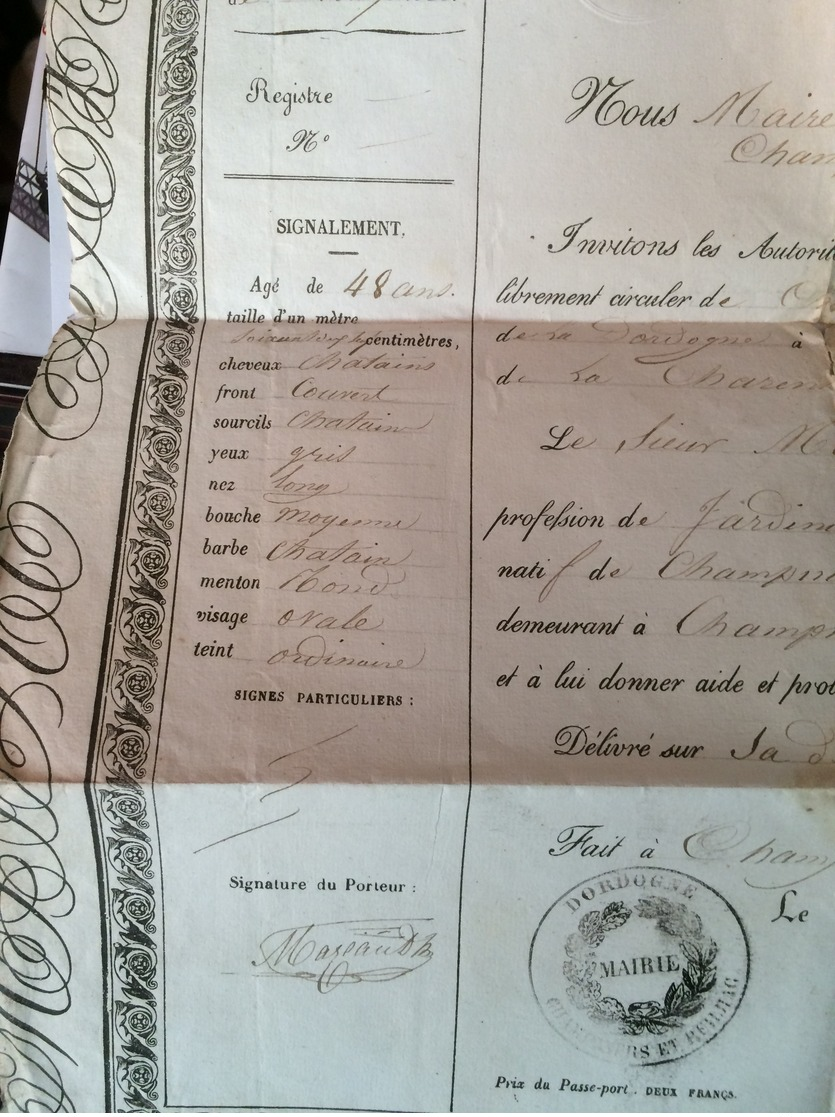 Registre
N°
SIGNALEMENT.
Agé de 48 ans.
taille d'un mètre
centimètres,
cheveux Chatains
front Couvert
sourcils Chatain
yeux gris
nez long
bouche moyenne
barbe Chatain
menton Rond
visage ovale
teint ordinaire
SIGNES PARTICULIERS :
Signature du Porteur :
Nous Maire
Cham
Invitons les Autorit
librement circuler de
de La Dordogne à
de La Charen
Le Sieur M
profession de Jardin
natif de Champn
demeurant à Champn
et à lui donner aide et prot
Délivré sur Sa d
Fait à Champ
Le
DORDOGNE
MAIRIE
ET REILHAC
Prix du Passe-port. DEUX FRANCS.